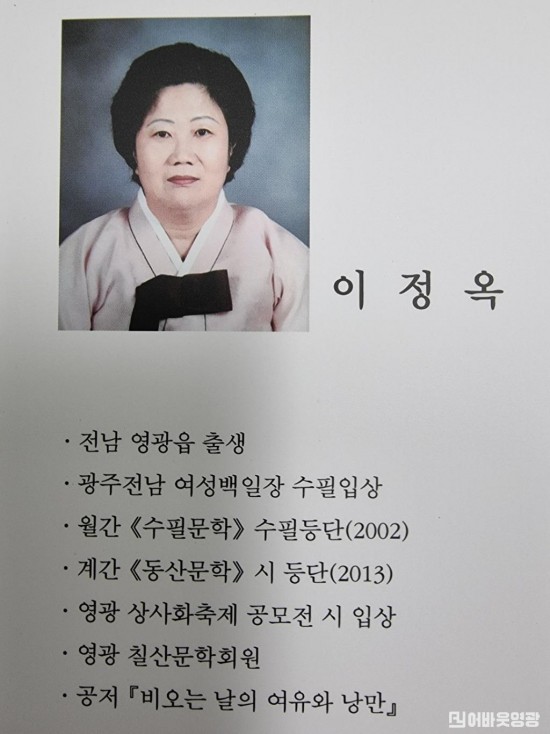 이 정 옥
· 전남 영광읍 출생
· 광주전남 여성백일장 수필입상
· 월간 《수필문학》 수필등단(2002)
· 계간 《동산문학》 시 등단(2013)
· 영광 상사화축제 공모전 시 입상
· 영광 칠산문학회원
· 공저 『비오는 날의 여유와 낭만』
어바웃영광